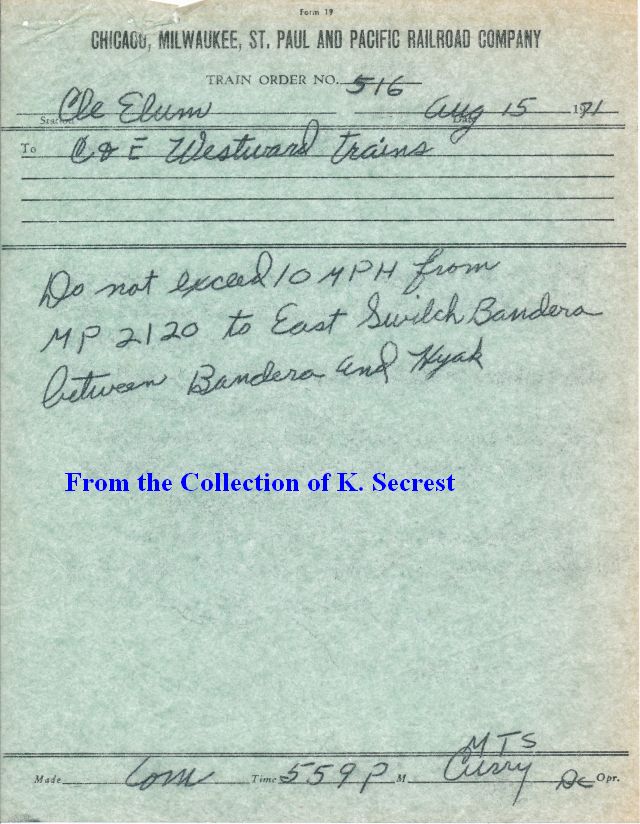 Form 19
CHICAGO, MILWAUKEE, ST. PAUL AND PACIFIC RAILROAD COMPANY
TRAIN ORDER NO. 516
Station Cle Elum Date Aug 15 1971
To C & E Westward Trains
Do not exceed 10 MPH from
MP 2120 to East Switch Bandera
between Bandera and Hyak
From the Collection of K. Secrest
MTS
Made Com Time 559 P M. Curry Opr.